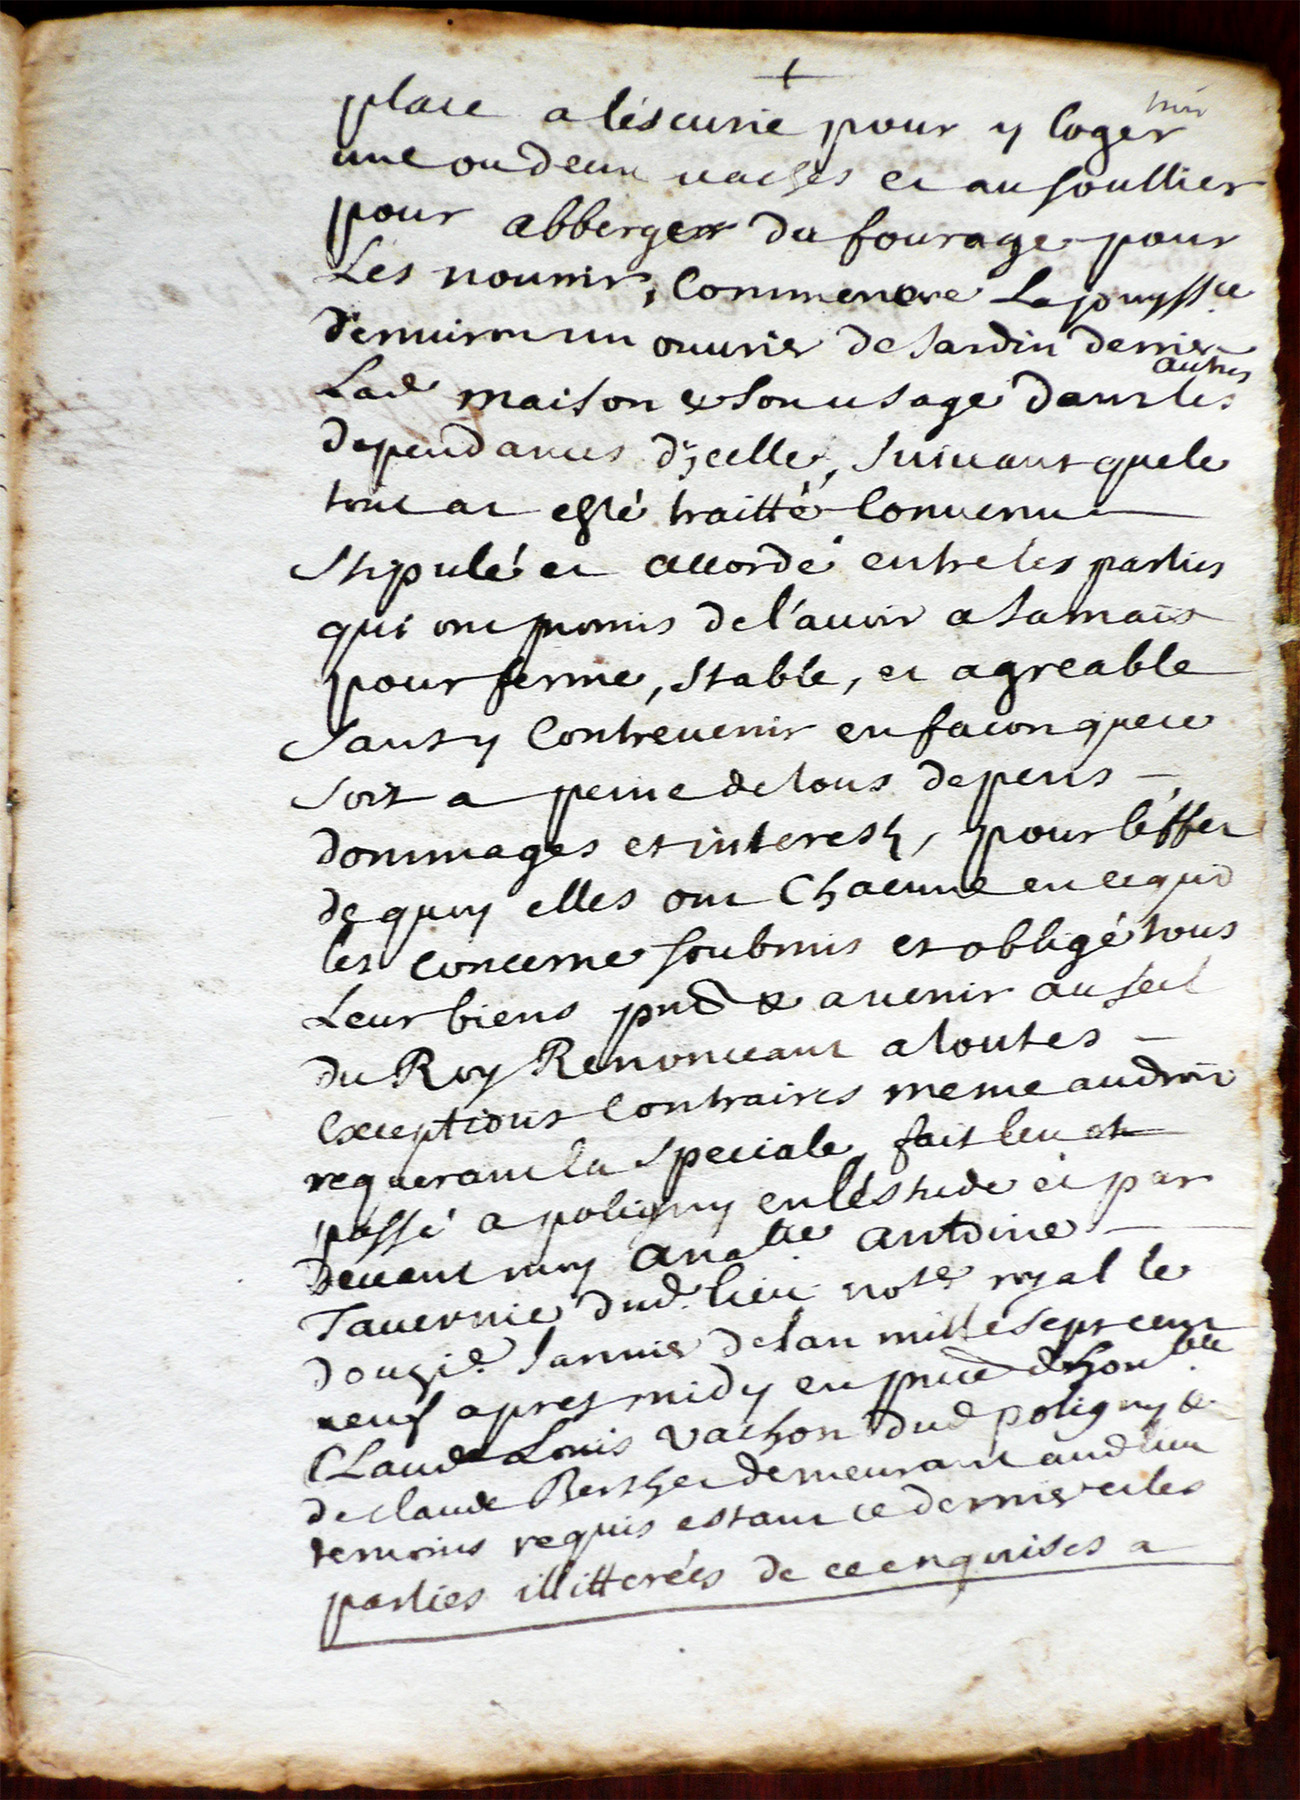 place a léscurie pour y loger
une ou deux vaches et au soullier
pour abberger du fourage pour
Les nourrir, Comm encore La jouyss.ce
denviron un ouvrier de Jardin derrier
autres
Lad. maison & son usage dans les
dependances d'jcelle, suivant que le
tout at esté traitté Convenu
Stipulé et accordé entre les parties
qui ont promis de l'avoir a Jamais
pour ferme, stable, et agreable
sans y Contrevenir en facon que ce
soit a peine de tous depens
dommages et interestz, pour léffet
de quoy elles ont Chacune en ce qui
les concerne soubmis et obligé tous
Leur biens pnd & avenir au scel
du Roy Renonceant a toutes
Exceptions Contraires meme au droit
requerant la speciale, fait leu et
passé a poligny en léstude et par
devant moy Ana.tle antoine
Tavernie dud. lieu not.re royal le
douzie. Janvier de lan mille sept cent
neuf apres midy en pnce de hon.ble
CLaude Louis Vachon dud poligny &
de claude Berthet demeurant aud lieu
temoins requis estant ce dernier et les
parties illitterées de ce enquises a